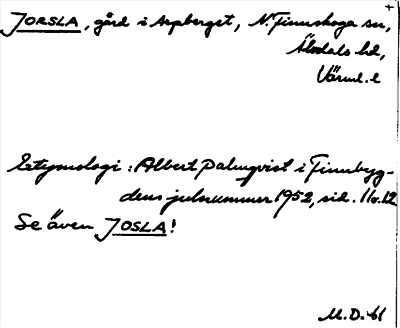 JORSLA, gård i Aspberget, N. Finnskoga sn,
Älvdals hd,
Värml. l
Etymologi: Albert Palmqvist i Finnbyg-
dens julnummer 1952, sid. 11 o. 12
Se även JOSLA!
M.D. 61